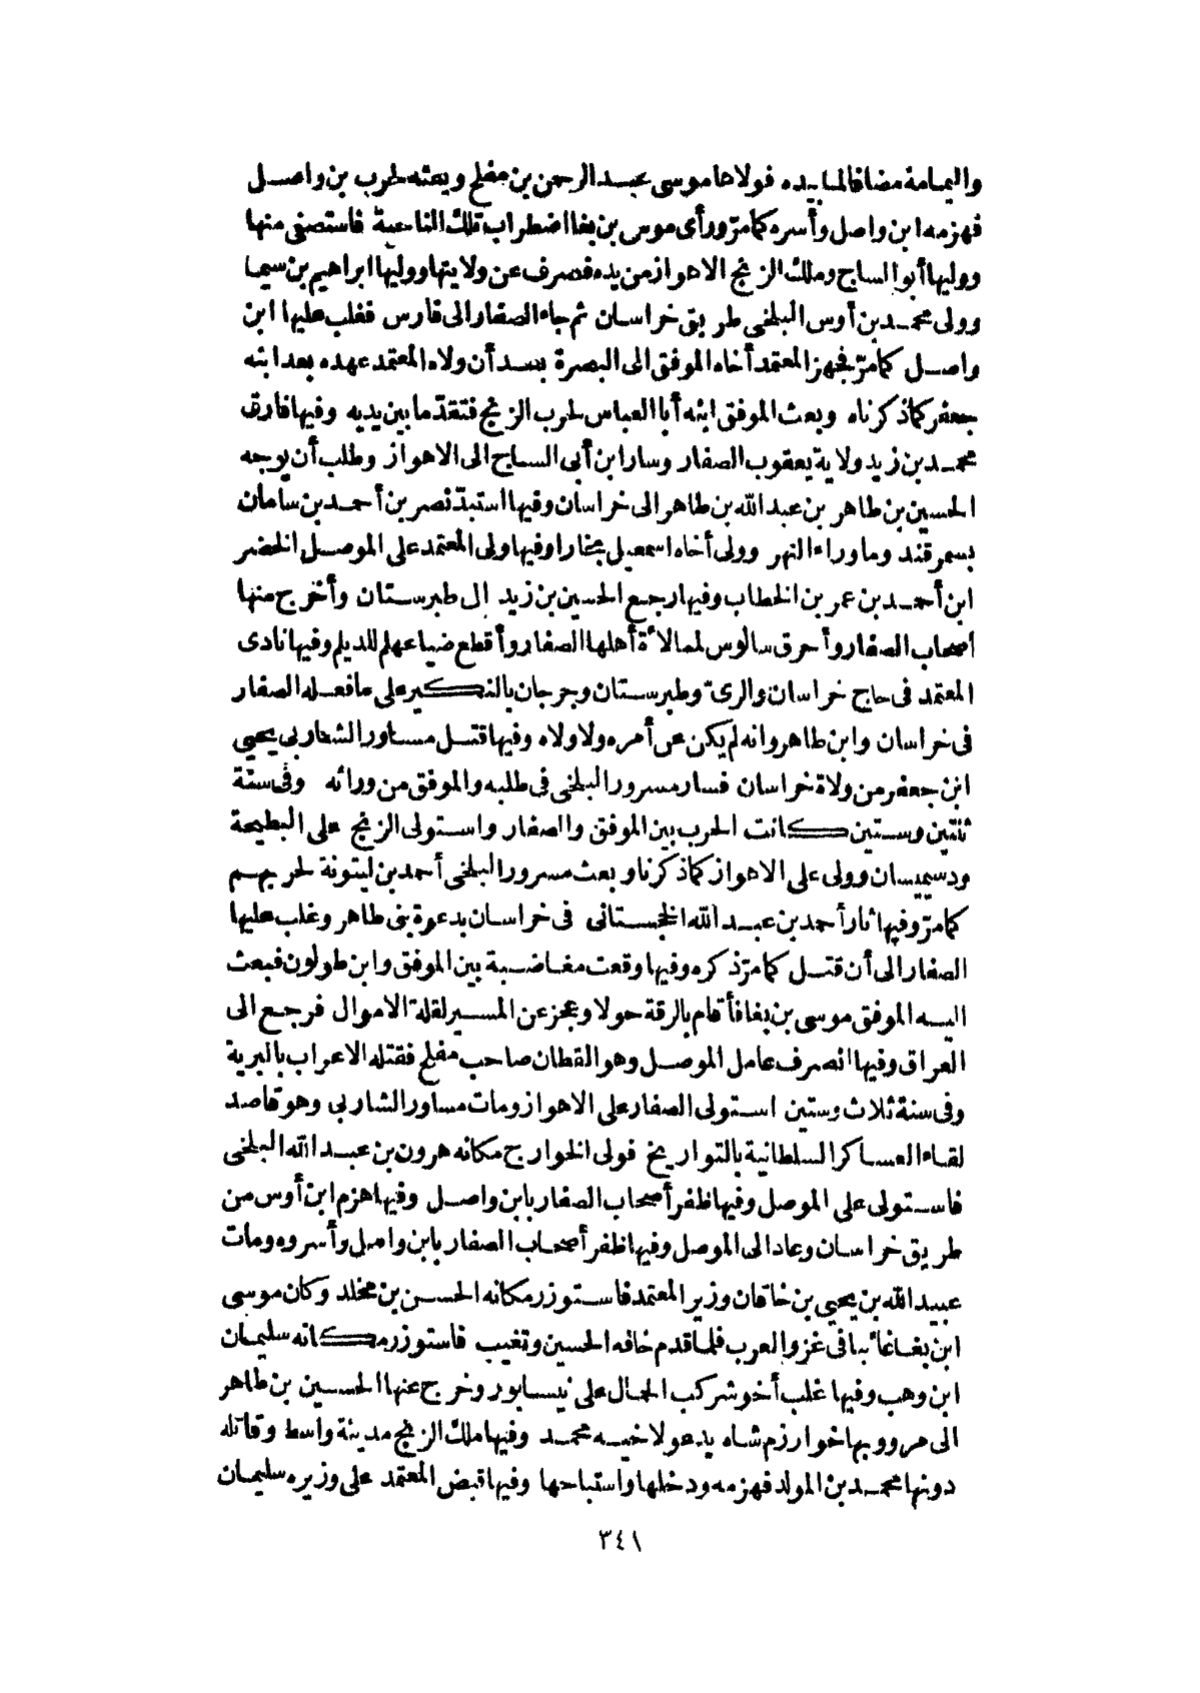 واليمامة مضافا لما بيده فولاها موسى عبد الرحمن بن مفلح وبعثه لحرب بن واصل
فهزمه ابن واصل وأسره كما مرّ ورأى موسى بن بغا اضطراب تلك الناحية فاستصفى منها
ووليها أبو الساج وملك الزنج الاهواز من يده فصرف عن ولايتها ووليها ابراهيم بن سيما
وولى محمد بن أوس البلخى طريق خراسان ثم جاء الصفار الى فارس فغلب عليها ابن
واصل كما مرّ فجهز المعتمد أخاه الموفق الى البصرة بعد أن ولاه المعتمد عهده بعد ابنه
جعفر كما ذكرناه وبعث الموفق ابنه أبا العباس لحرب الزنج فتقدّم ما بين يديه وفيها فارق
محمد بن زيد ولاية يعقوب الصفار وسار ابن أبى الساج الى الاهواز وطلب أن يوجه
الحسين بن طاهر بن عبد الله بن طاهر الى خراسان وفيها استبدّ نصر بن أحمد بن سامان
بسمرقند وما وراء النهر وولى أخاه اسمعيل بخارا وفيها ولى المعتمد على الموصل الخضر
ابن أحمد بن عمر بن الخطاب وفيها رجع الحسين بن زيد الى طبرستان وأخرج منها
أصحاب الصفار وأحرق سالوس لممالأة أهلها الصفار وأقطع ضياعهم للديلم وفيها نادى
المعتمد فى حاج خراسان والرىّ وطبرستان وجرجان بالنكير على ما فعله الصفار
فى خراسان وابن طاهر وانه لم يكن عن أمره ولا ولاه وفيها قتل مساور الشارى يحيى
ابن جعفر من ولاة خراسان فسار مسرور البلخى فى طلبه والموفق من ورائه وفى سنة
ثنتين وستين كانت الحرب بين الموفق والصفار واستولى الزنج على البطيحة
ودسيميسان وولى على الاهواز كما ذكرنا وبعث مسرور البلخى أحمد بن ليتونة لحربهم
كما مرّ وفيها ثار أحمد بن عبد الله الخجستانى فى خراسان بدعوة بنى طاهر وغلب عليها
الصفار الى أن قتل كما مرّ ذكره وفيها وقعت مغاضبة بين الموفق وابن طولون فبعث
اليه الموفق موسى بن بغا فأقام بالرقة حولا وعجز عن المسير لقلة الاموال فرجع الى
العراق وفيها انصرف عامل الموصل وهو القطان صاحب مفلح فقتله الاعراب بالبرية
وفى سنة ثلاث وستين استولى الصفار على الاهواز ومات مساور الشارى وهو قاصد
لقاء العساكر السلطانية بالتواريخ فولى الخوارج مكانه هرون بن عبد الله البلخى
فاستولى على الموصل وفيها ظفر أصحاب الصفار بابن واصل وفيها هزم ابن أوس من
طريق خراسان وعاد الى الموصل وفيها ظفر أصحاب الصفار بابن واصل وأسروه ومات
عبيد الله بن يحيى بن خاقان وزير المعتمد فاستوزر مكانه الحسن بن مخلد وكان موسى
ابن بغا غائبا فى غزو العرب فلما قدم خافه الحسين وتغيب فاستوزر مكانه سليمان
ابن وهب وفيها غلب أخو شركب الجمال على نيسابور وخرج عنها الحسين بن طاهر
الى مرو وبها خوارزم شاه يدعو لاخيه محمد وفيها ملك الزنج مدينة واسط وقاتله
دونها محمد بن المولد فهزمه ودخلها واستباحها وفيها قبض المعتمد على وزيره سليمان
٣٤١